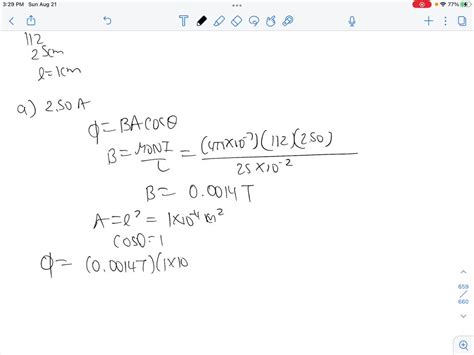 3:29 PM Sun Aug 21
77%
112
25cm
l=1cm
a) 2.50 A
ϕ= BACosθ
B = μ0NI/L = (4π×10⁻⁷)(112)(2.50)/25×10⁻²
B = 0.0014T
A=l² = 1×10⁻⁴ m²
Cosθ=1
ϕ= (0.0014T)(1×10
659
660